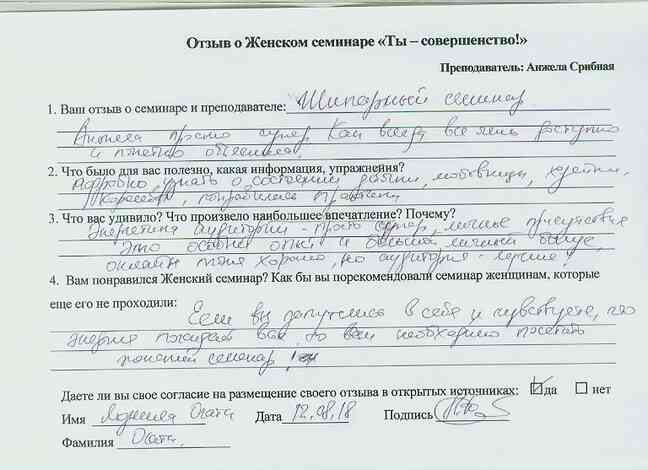 Отзыв о Женском семинаре «Ты – совершенство!»
Преподаватель: Анжела Срибная
1. Ваш отзыв о семинаре и преподавателе: Шикарный семинар
Анжела просто супер. Как всегда все ясно доступно
и понятно объяснила.
2. Что было для вас полезно, какая информация, упражнения?
Подробно узнать о состоянии девочки, любовницы, хозяйки,
королевы, понравились практики
3. Что вас удивило? Что произвело наибольшее впечатление? Почему?
Энергетика аудитории - просто супер, личное присутствие
Это особый опыт и большой личный бонус,
онлайн тоже хорошо, но аудитория - лучше!
4. Вам понравился Женский семинар? Как бы вы порекомендовали семинар женщинам, которые
еще его не проходили:
Если вы запутались в себе и чувствуете, что
энергия покидает вас, то вам необходимо посетить
женский семинар
Даете ли вы свое согласие на размещение своего отзыва в открытых источниках: да нет
Имя Дата 12.08.18 Подпись
Фамилия